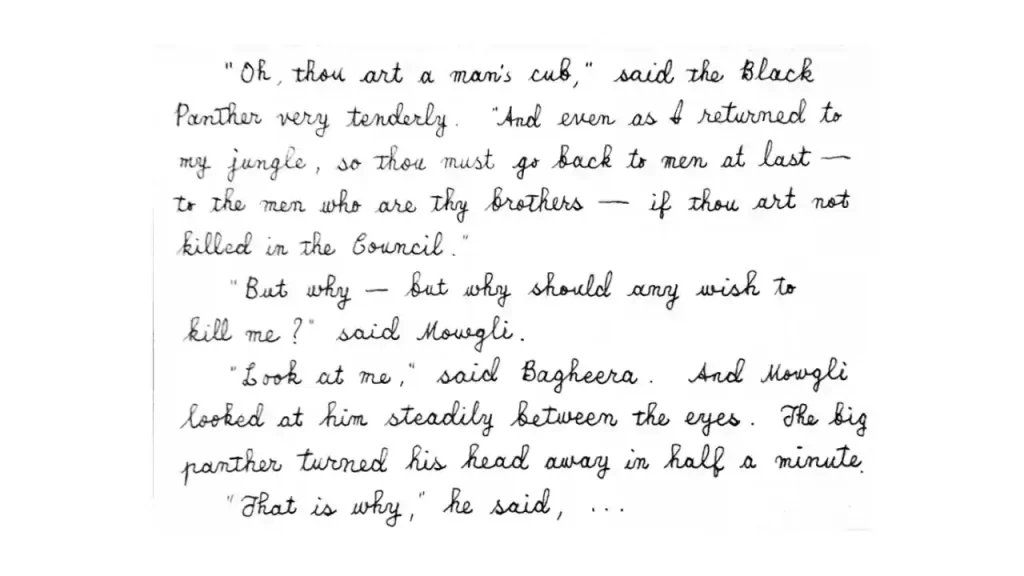 "Oh, thou art a man's cub," said the Black
Panther very tenderly. "And even as I returned to
my jungle, so thou must go back to men at last —
to the men who are thy brothers — if thou art not
killed in the Council."
"But why — but why should any wish to
kill me?" said Mowgli.
"Look at me," said Bagheera. And Mowgli
looked at him steadily between the eyes. The big
panther turned his head away in half a minute.
"That is why," he said, ...